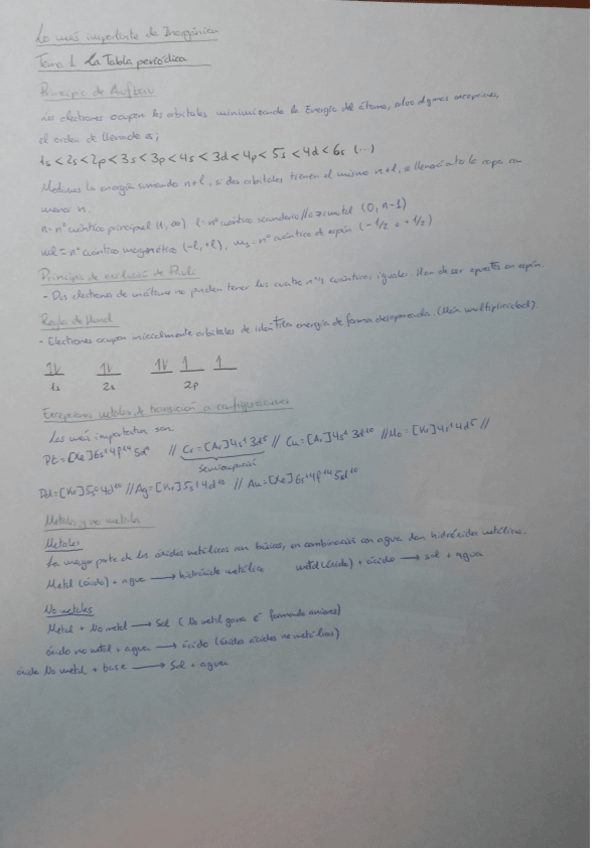 Lo más importante de Inorgánica
Tema 1 La Tabla periódica
Principio de Aufbau
Los electrones ocupan los orbitales minimizando la Energía del átomo, salvo algunas excepciones,
el orden de llenado es;
1s < 2s < 2p < 3s < 3p < 4s < 3d < 4p < 5s < 4d < 6s (...)
Medimos la energía sumando n+l, si dos orbitales tienen el mismo n+l, se llenará antes la capa con
menor n.
n = nº cuántico principal (1, ∞) l = nº cuántico secundario // azimutal (0, n-1)
ml = nº cuántico magnético (-l, +l), ms = nº cuántico de espín (-1/2 o +1/2)
Principio de exclusión de Pauli
- Dos electrones de un átomo no pueden tener los cuatro nºs cuánticos iguales. Han de ser opuestos en espín.
Regla de Hund
- Electrones ocupan inicialmente orbitales de idéntica energía de forma desapareada. (Máx multiplicidad).
1s 2s 2p
Excepciones metales de transición a configuraciones
Las más importantes son:
Pt = [Xe] 6s¹ 4f¹⁴ 5d⁹ // Cr = [Ar] 4s¹ 3d⁵ // Cu = [Ar] 4s¹ 3d¹⁰ // Mo = [Kr] 5s¹ 4d⁵ //
Semiocupación
Pd = [Kr] 5s⁰ 4d¹⁰ // Ag = [Kr] 5s¹ 4d¹⁰ // Au = [Xe] 6s¹ 4f¹⁴ 5d¹⁰
Metales y no metales
Metales
La mayor parte de los óxidos metálicos son básicos, en combinación con agua dan hidróxidos metálicos.
Metal (óxido) + agua → hidróxido metálico metal (óxido) + ácido → sal + agua
No metales
Metal + No metal → Sal (No metal gana e⁻ formando aniones)
óxido no metal + agua → ácido (óxidos ácidos no metálicos)
óxido No metal + base → Sal + agua